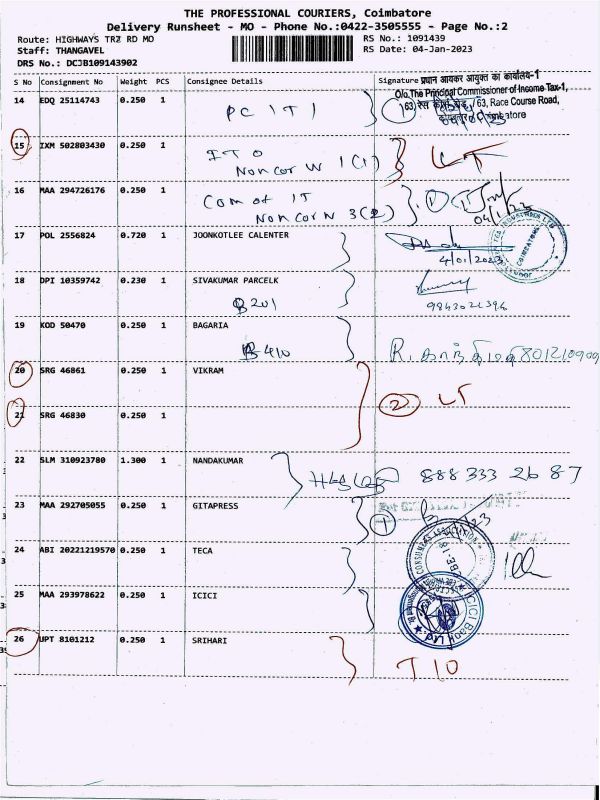 THE PROFESSIONAL COURIERS, Coimbatore
Delivery Runsheet - MO - Phone No.:0422-3505555 - Page No.:2
Route: HIGHWAYS TRZ RD MO
RS No.: 1091439
Staff: THANGAVEL
RS Date: 04-Jan-2023
DRS No.: DCJB109143902
S No Consignment No Weight PCS Consignee Details Signature
प्रधान आयकर आयुक्त का कार्यालय-1
O/o.The Principal Commissioner of Income Tax-1,
63, रेस कोर्स रोड, / 63, Race Course Road,
14 EDQ 25114743 0.250 1 PC IT 1
15 IXM 502803430 0.250 1 ITO
Noncor W 1(1)
16 MAA 294726176 0.250 1 Com of IT
Noncor W 3(2) 1
04/1/23
17 POL 2556824 0.720 1 JOONKOTLEE CALENTER
4/01/2023
COIMBATORE
18 DPI 10359742 0.230 1 SIVAKUMAR PARCELK
B 201 9843021396
19 KOD 50470 0.250 1 BAGARIA
B 410 R. காந்திமதி
20 SRG 46861 0.250 1 VIKRAM
2
21 SRG 46830 0.250 1
22 SLM 310923780 1.300 1 NANDAKUMAR 888 333 26 87
23 MAA 292705055 1 GITAPRESS 1
24 ABI 20221219570 0.250 1 TECA
CONSUMERS ASSOCIATION
25 MAA 293978622 0.250 1 ICICI
ICICI Bank Ltd
26 UPT 8101212 0.250 1 SRIHARI